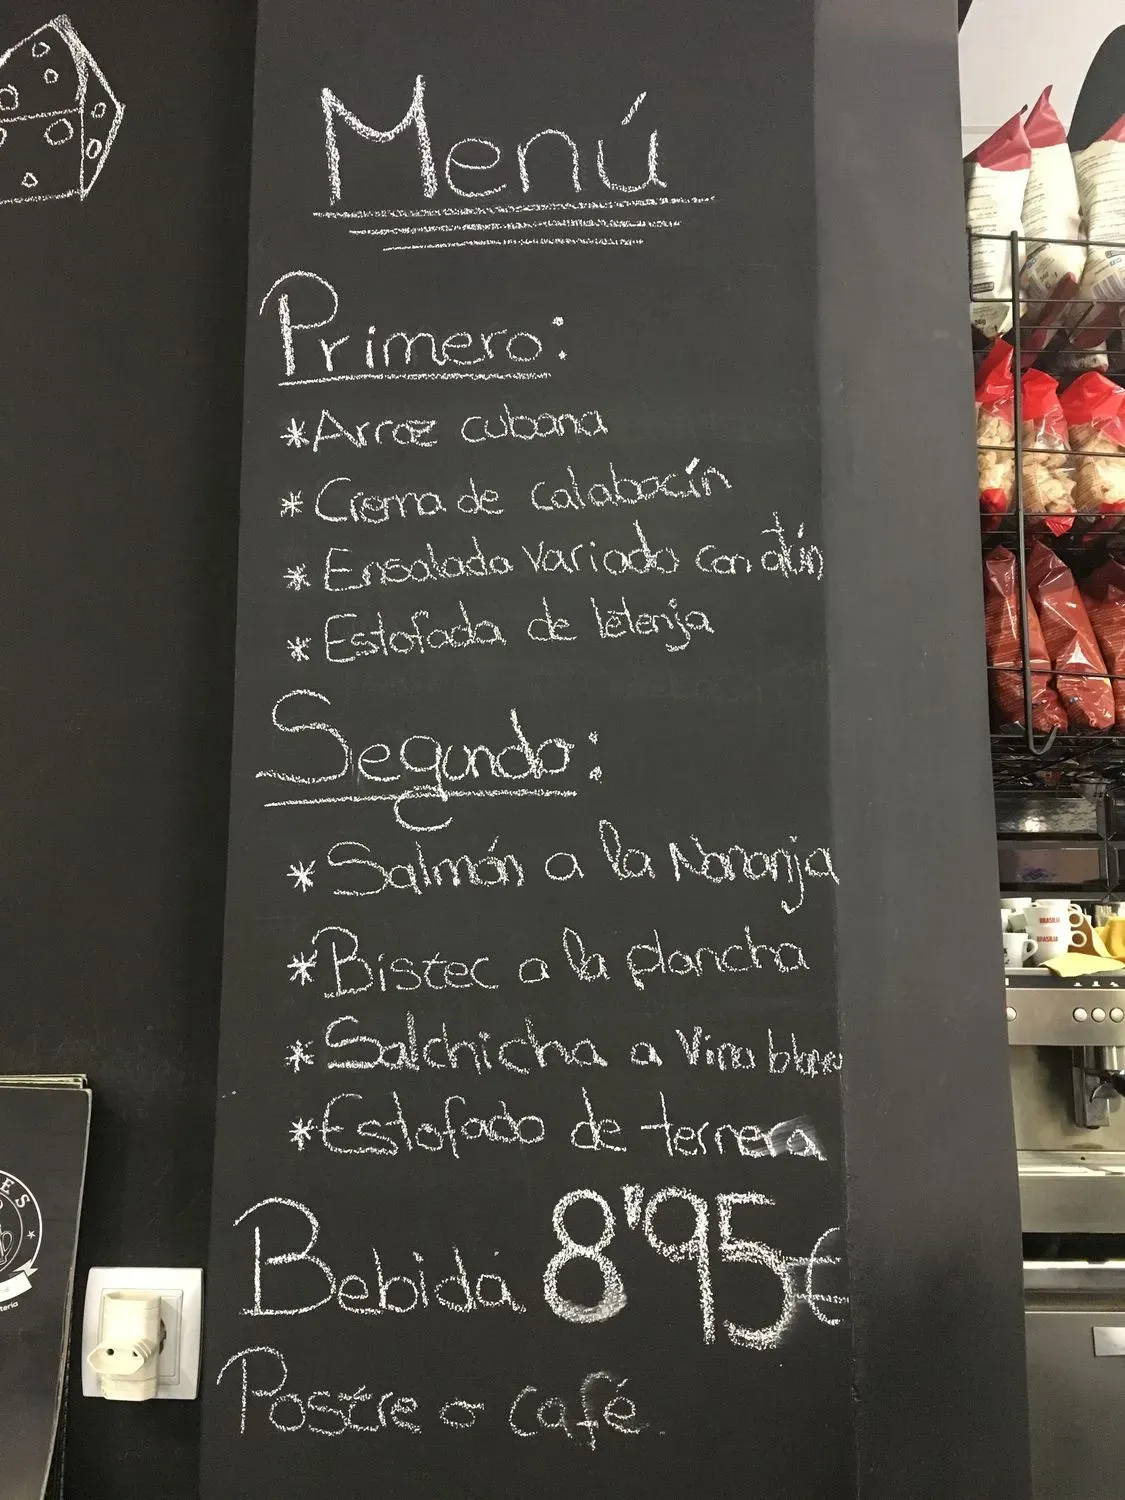 Menú
Primero:
*Arroz cubana
*Crema de calabacín
*Ensalada variada con atún
*Estofada de letenja
Segundo:
*Salmón a la Naranja
*Bistec a la plancha
*Salchicha a Vino blanco
*Estofado de ternera
Bebida 8'95€
Postre o café
BRASILIA
BRASILIA